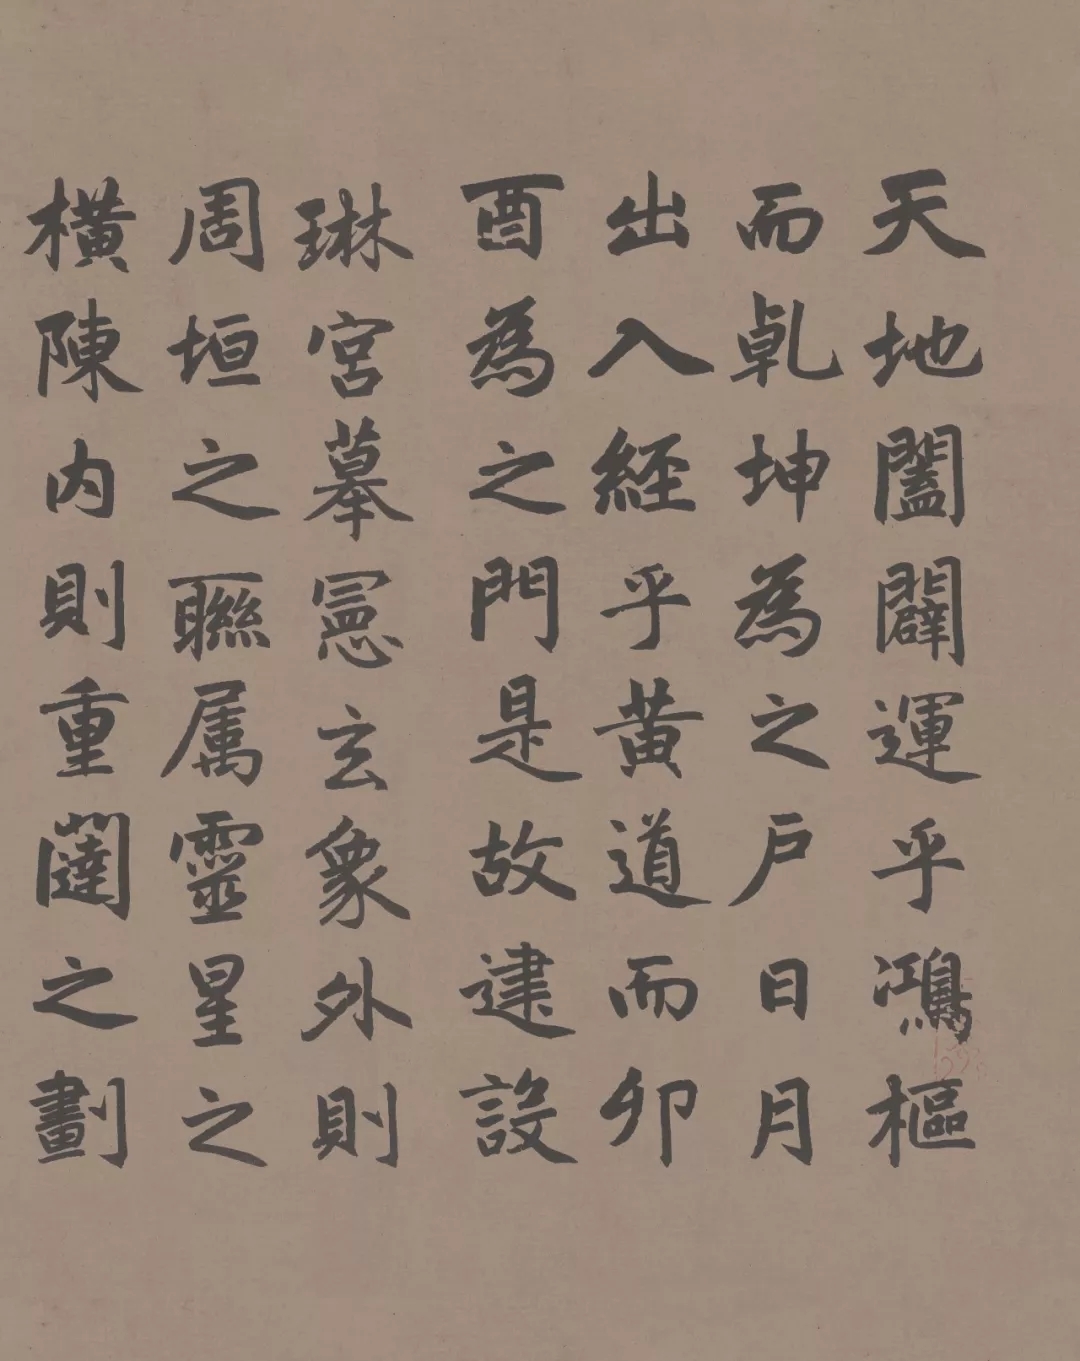 天地闔闢運乎鴻樞
而乾坤為之戶日月
出入經乎黃道而卯
酉為之門是故建設
琳宮摹憲玄象外則
周垣之聯属靈星之
橫陳内則重闥之劃